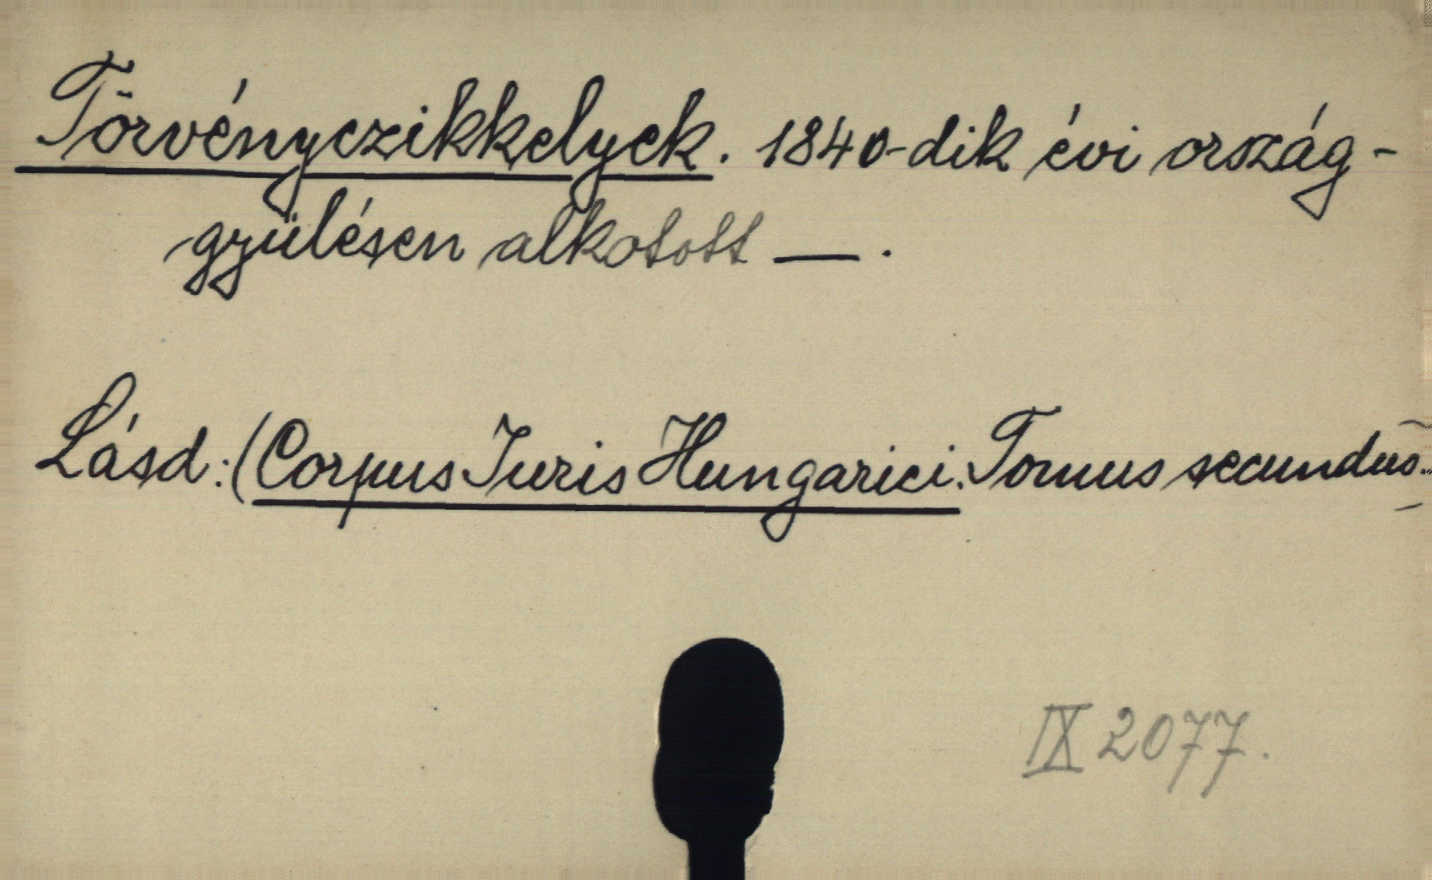 Törvényczikkelyek. 1840-dik évi ország-
gyülésen alkotott —.
Lásd: (Corpus Iuris Hungarici. Tomus secundus..
IX 2077.